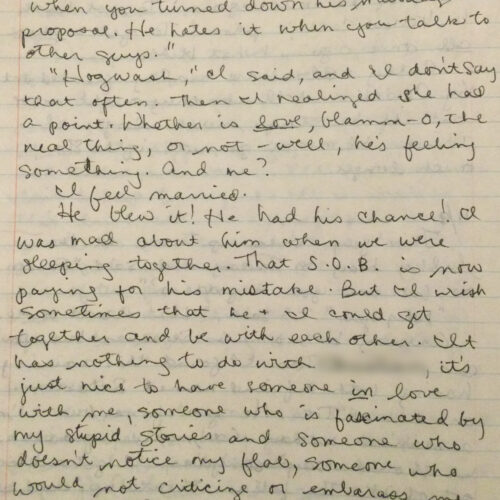 when you turned down his marriage
proposal. He hates it when you talk to
other guys."
"Hogwash," I said, and I don't say
that often. Then I realized she had
a point. Whether is love, blamm-o, the
real thing, or not - well, he's feeling
something. And me?
I feel married.
He blew it! He had his chance! I
was mad about him when we were
sleeping together. That S.O.B. is now
paying for his mistake. But I wish
sometimes that he + I could get
together and be with each other. It
has nothing to do with , it's
just nice to have someone in love
with me, someone who is fascinated by
my stupid stories and someone who
doesn't notice my flab, someone who
would not criticize or embarass me